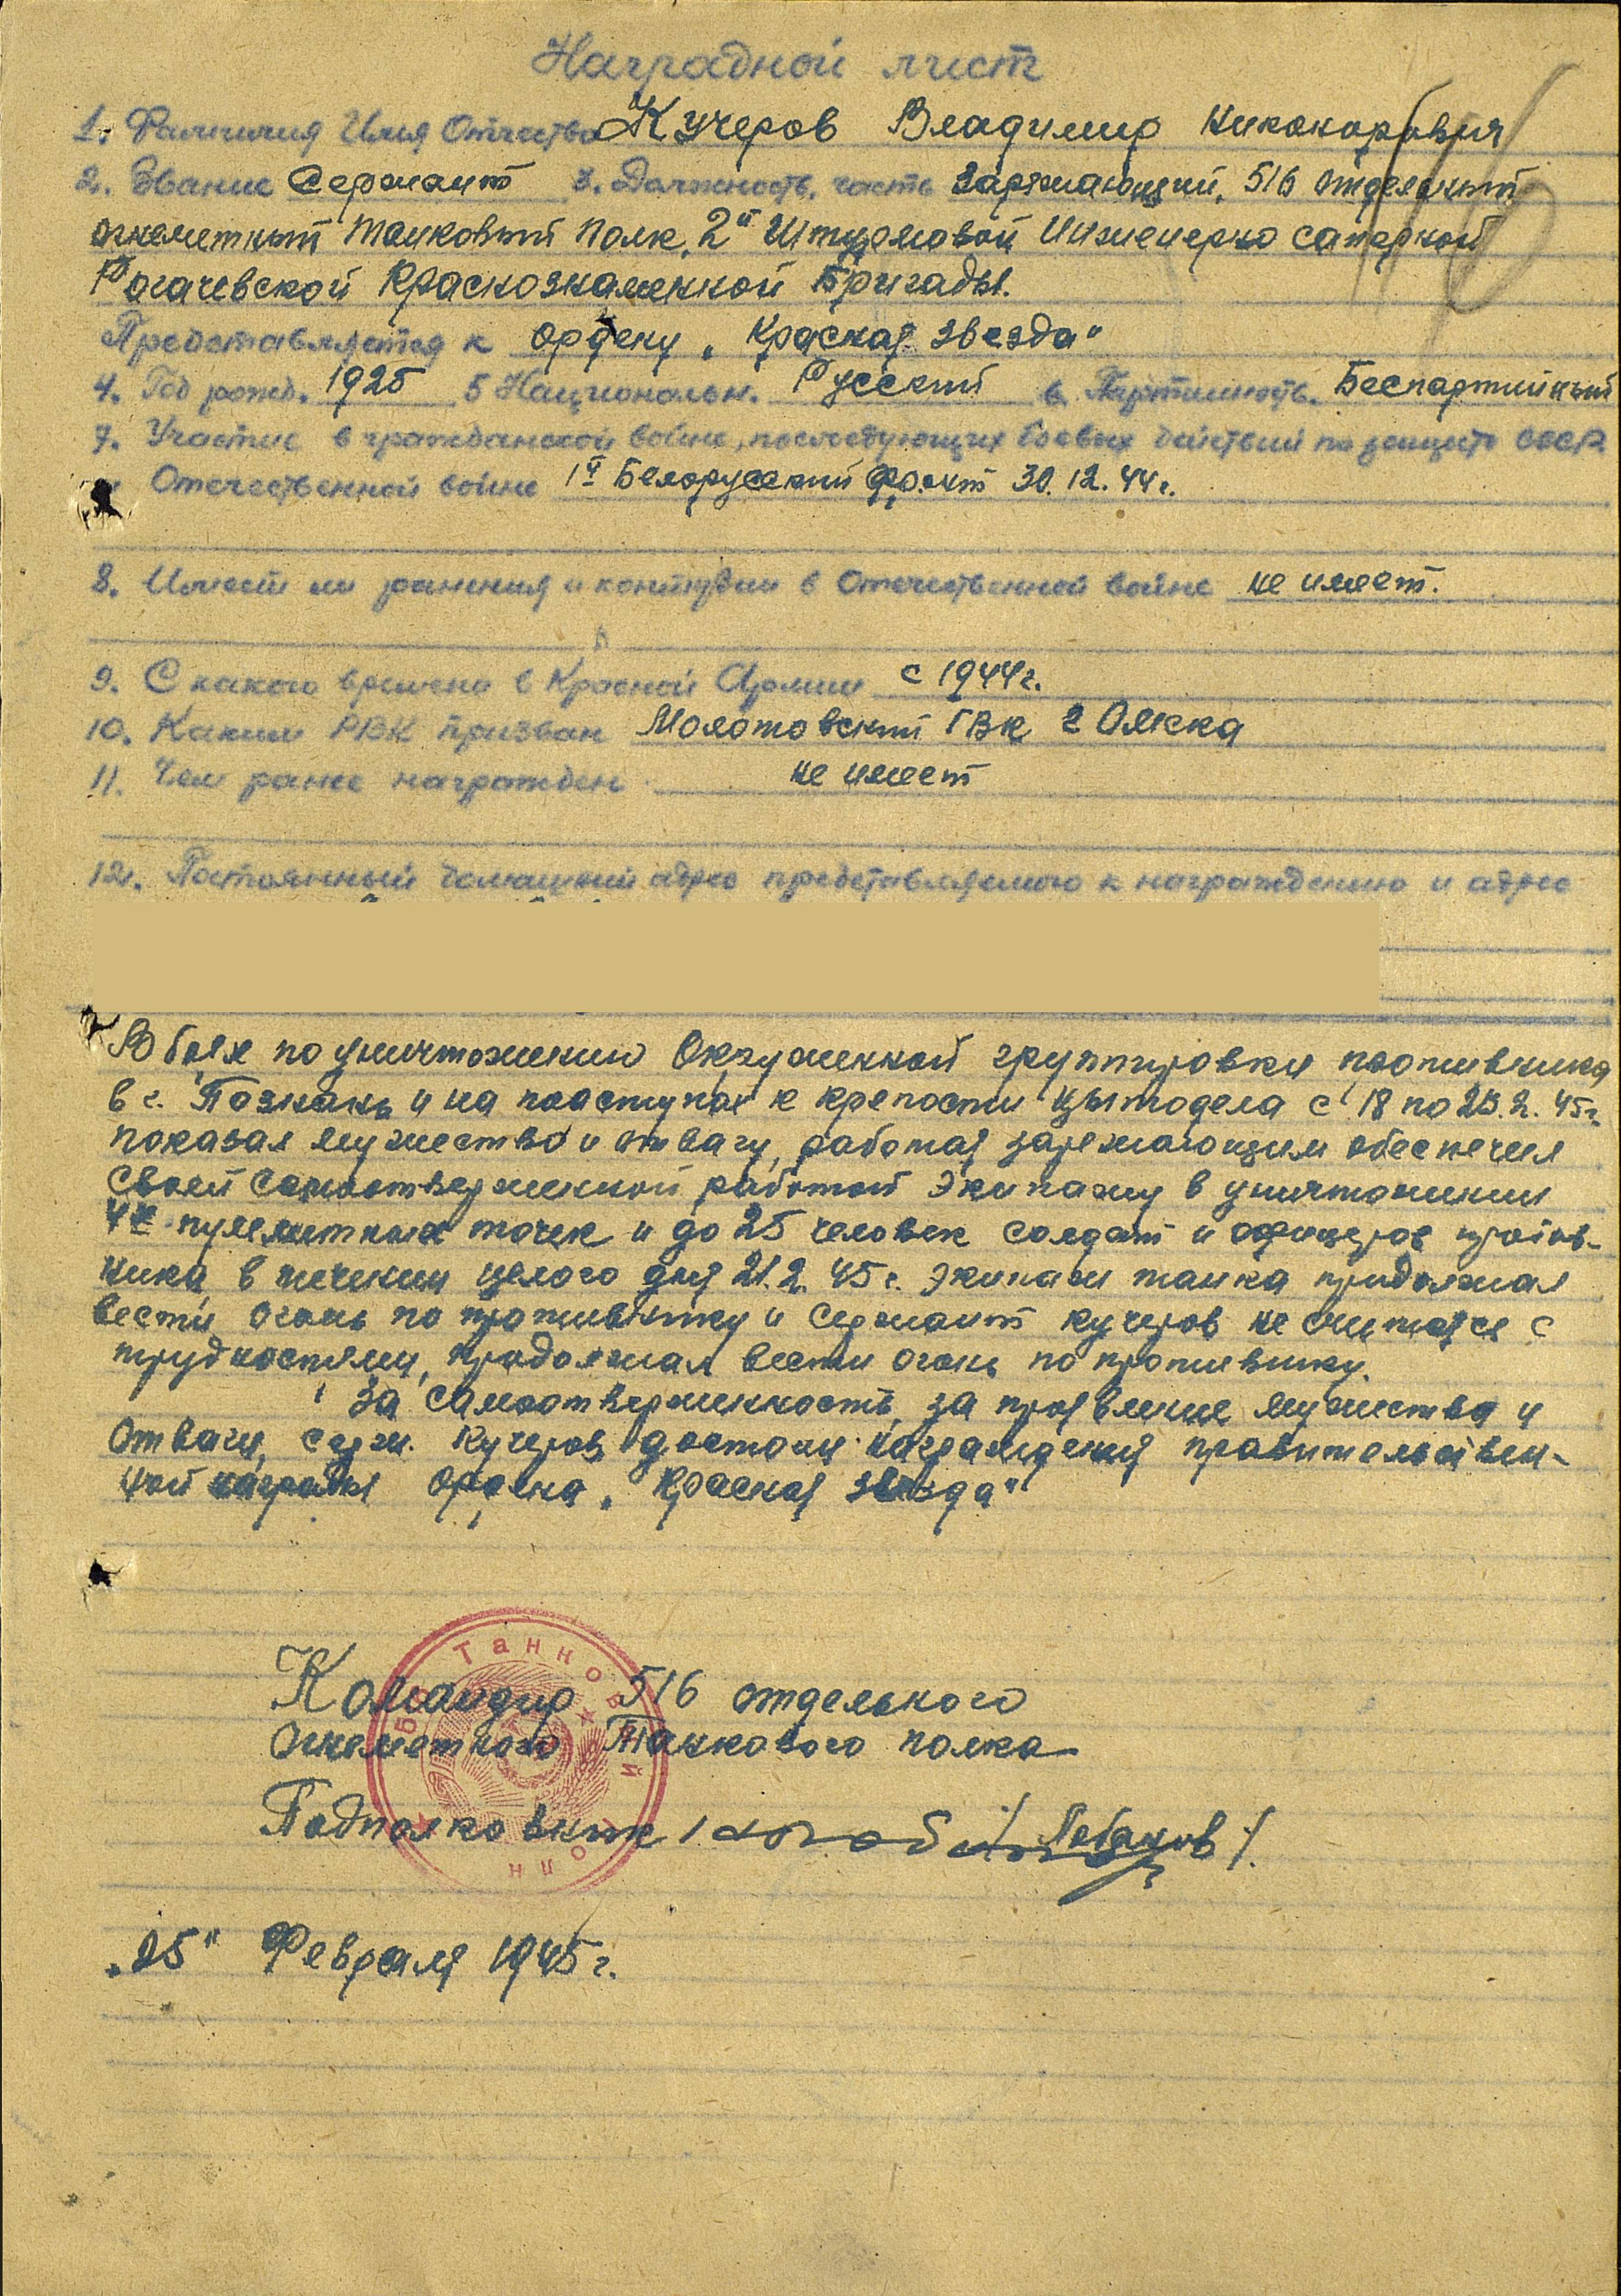 Наградной лист
1. Фамилия Имя Отчество Кучеров Владимир Никонорович
2. Звание Сержант 3. Должность, часть Заряжающий, 516 отдельный
огнеметный танковый полк, 2й Штурмовой Инженерно саперной
Рогачевской Краснознаменной Бригады.
Представляется к ордену „Красная звезда"
4. Год рожд. 1925 5 Национальн. Русский 6. Партийность. Беспартийный
7. Участие в гражданской войне, последующих боевых действий по защите СССР
и Отечественной войне 1й Белорусский фронт 30.12.44г.
8. Имеет ли ранения и контузии в Отечественной войне не имеет.
9. С какого времени в Красной Армии с 1944г.
10. Каким РВК призван Молотовский ГВК г Омска
11. Чем ранее награжден не имеет
12. Постоянный домашний адрес представляемого к награждению и адрес
В боях по уничтожению Окруженной группировки противника
в г. Познань и на подступах к крепости Цытодела с 18 по 23.2.45г.
показал мужество и отвагу, работая заряжающим обеспечил
своей самоотверженной работой экипажу в уничтожении
4х пулеметных точек и до 25 человек солдат и офицеров против-
ника, в течении целого дня 21.2.45г. экипаж танка продолжал
вести огонь по противнику и сержант Кучеров не считаясь с
трудностями, продолжал вести огонь по противнику.
За самоотверженность, за проявление мужества и
отваги, серж. Кучеров достоин награждения правительствен-
ной награды ордена „Красная звезда"
Командир 516 отдельного
Огнеметного Танкового полка
Подполковник
„25" Февраля 1945г.